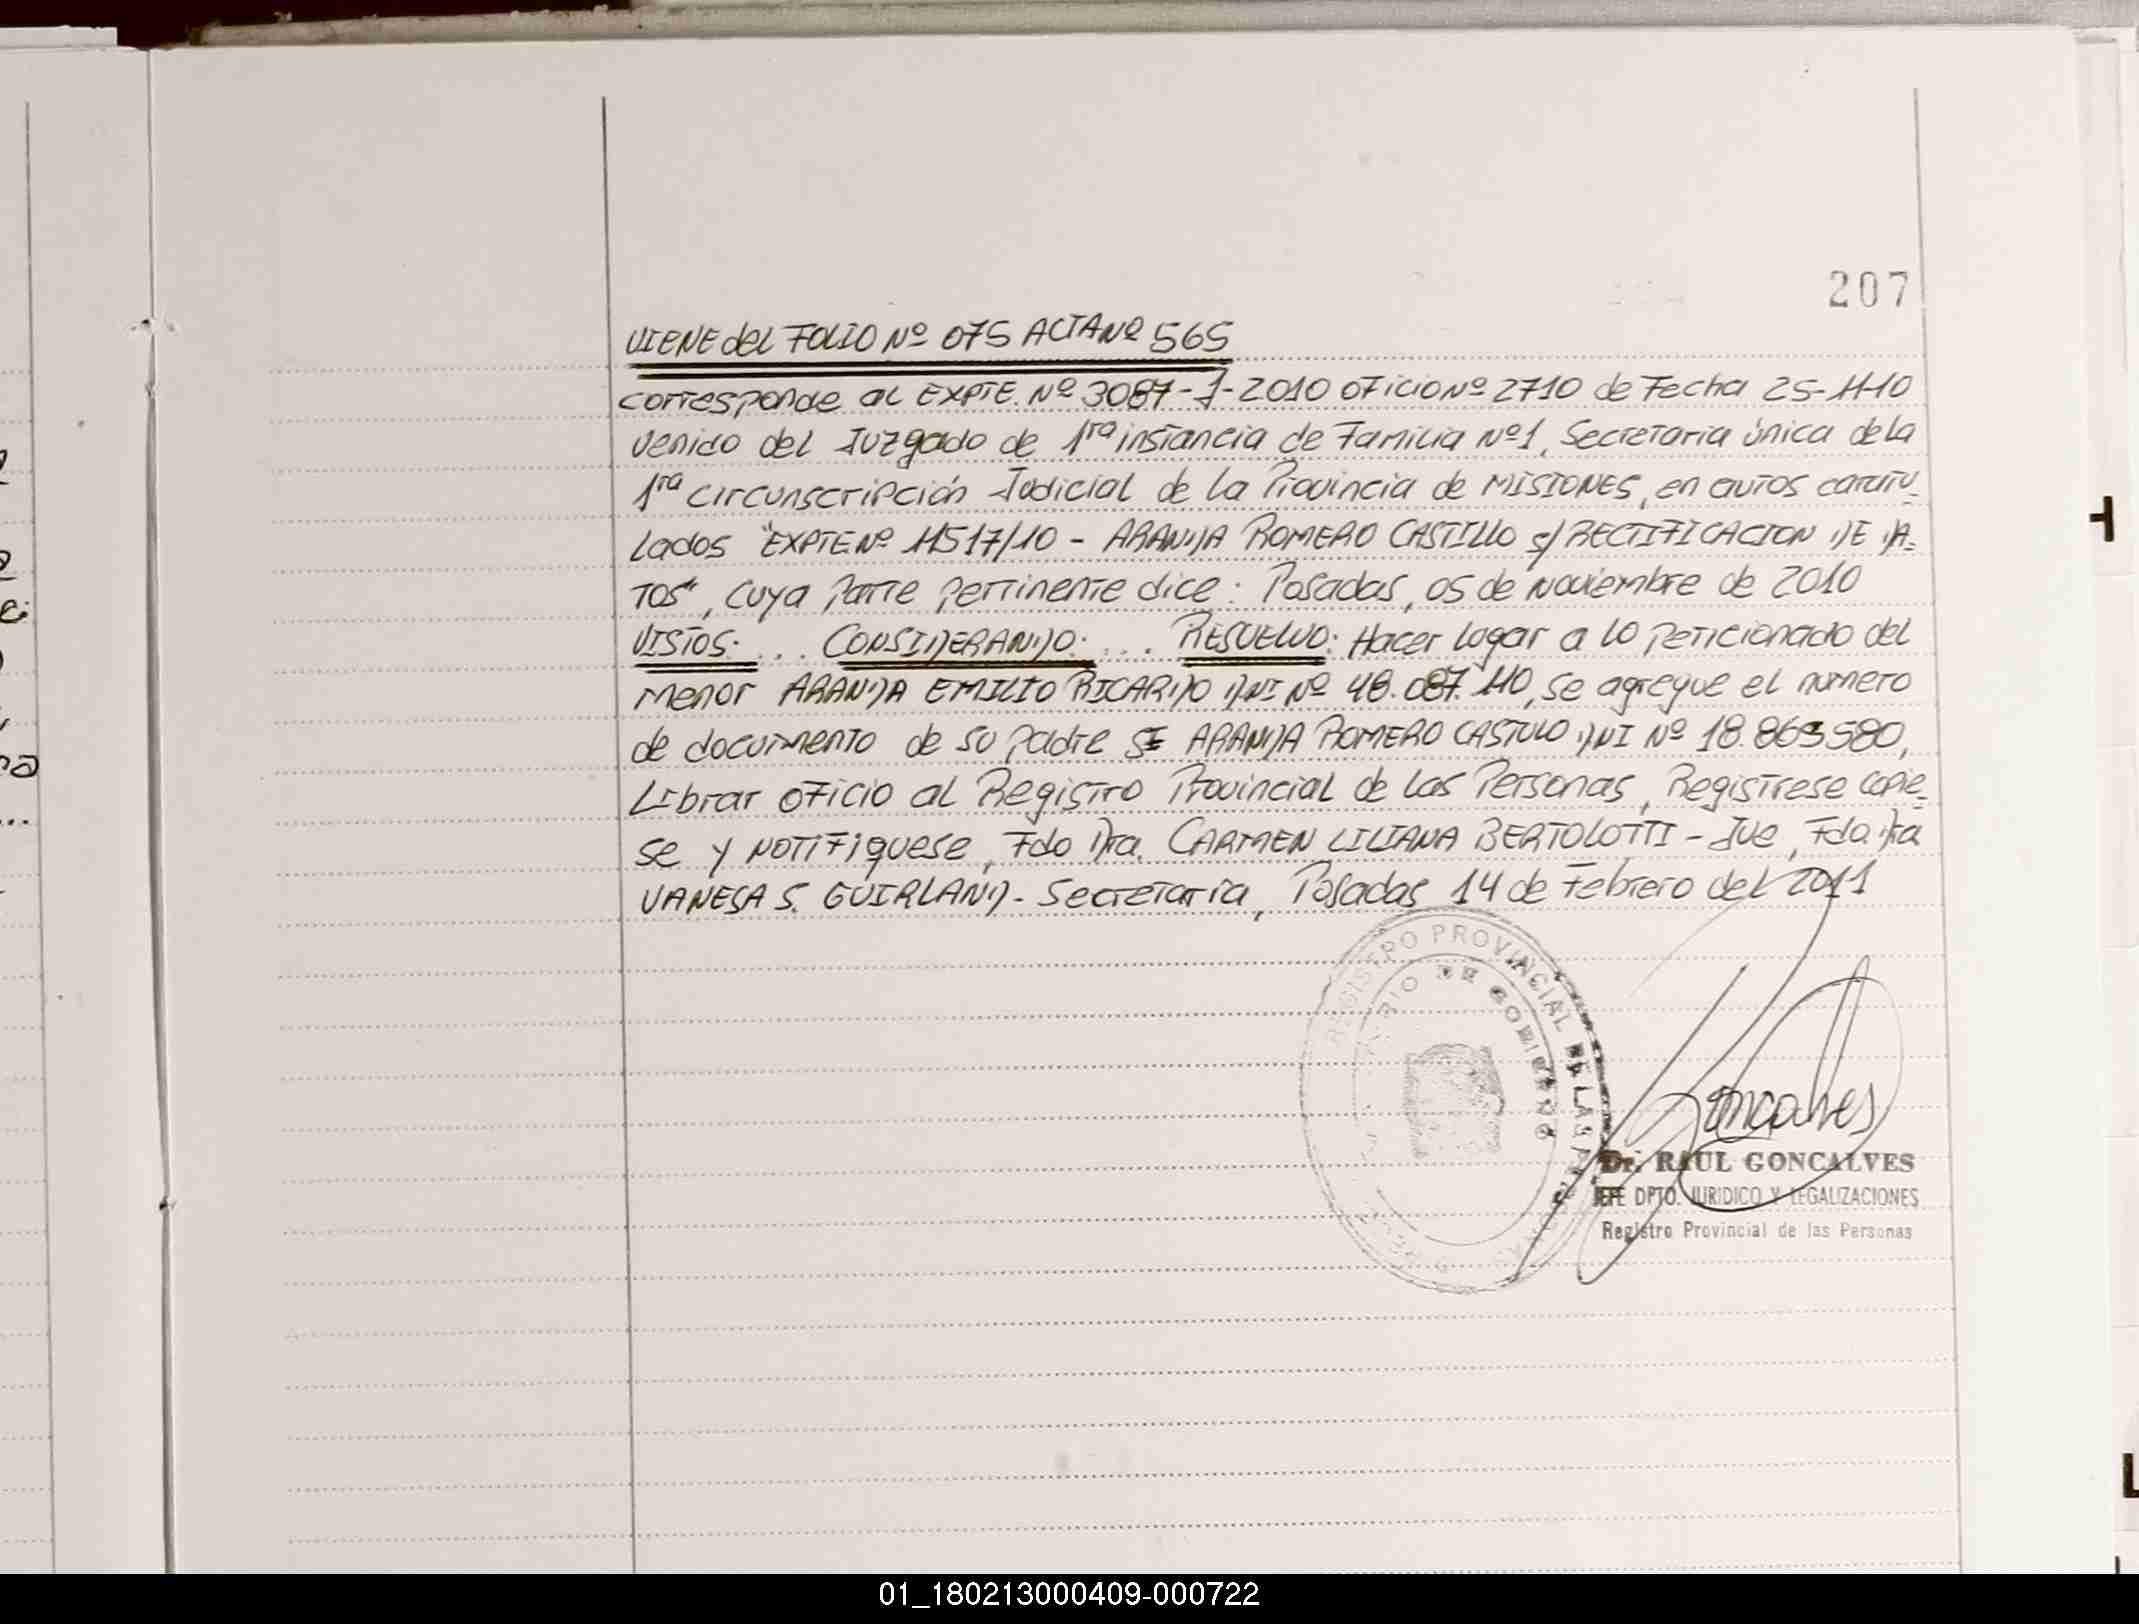 207
VIENE del FOLIO Nº 075 ACTA Nº 565
corresponde al EXPTE. Nº 3087-J-2010 oficio Nº 2710 de Fecha 25-11-10
venido del Juzgado de 1ra instancia de Familia Nº1, Secretaria única de la
1ra circunscripción Judicial de la Provincia de MISIONES, en autos caratu-
lados "EXPTE Nº 11517/10 - ARANDA ROMERO CASTILLO s/ RECTIFICACION DE DA-
TOS", cuya parte pertinente dice: Posadas, 05 de Noviembre de 2010
VISTOS: ... CONSIDERANDO: ... RESUELVO: Hacer lugar a lo peticionado del
menor ARANDA EMILIO RICARDO DNI Nº 48.087.110, se agregue el numero
de documento de su padre ARANDA ROMERO CASTULO DNI Nº 18.869.580,
Librar oficio al Registro Provincial de las Personas, Registrese copie-
se y NOTIFIQUESE, Fdo Dra. CARMEN LILIANA BERTOLOTTI - Jue, Fdo. Dra
VANESA S. GUIRLAND - Secretaria, Posadas 14 de Febrero del 2011
REGISTRO PROVINCIAL DE LAS
DE GOBIERNO
Goncalves
Dr. RAUL GONCALVES
JEFE DPTO. JURIDICO Y LEGALIZACIONES
Registro Provincial de las Personas
01_180213000409-000722